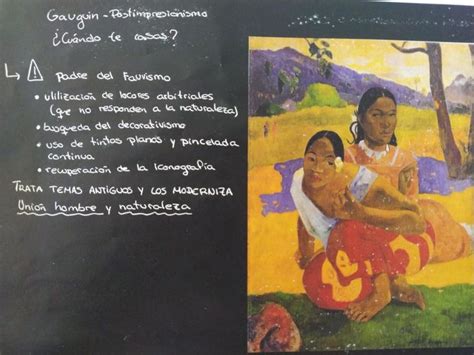 Gauguin - Postimpresionismo
¿Cuándo te casas?
Padre del Fauvismo
• utilización de locores arbitriales
(que no responden a la naturaleza)
• busqueda del decorativismo
• uso de tintas planas y pincelada
continua
• recuperación de la Iconografía
TRATA TEMAS ANTIGUOS Y LOS MODERNIZA
Unión hombre y naturaleza